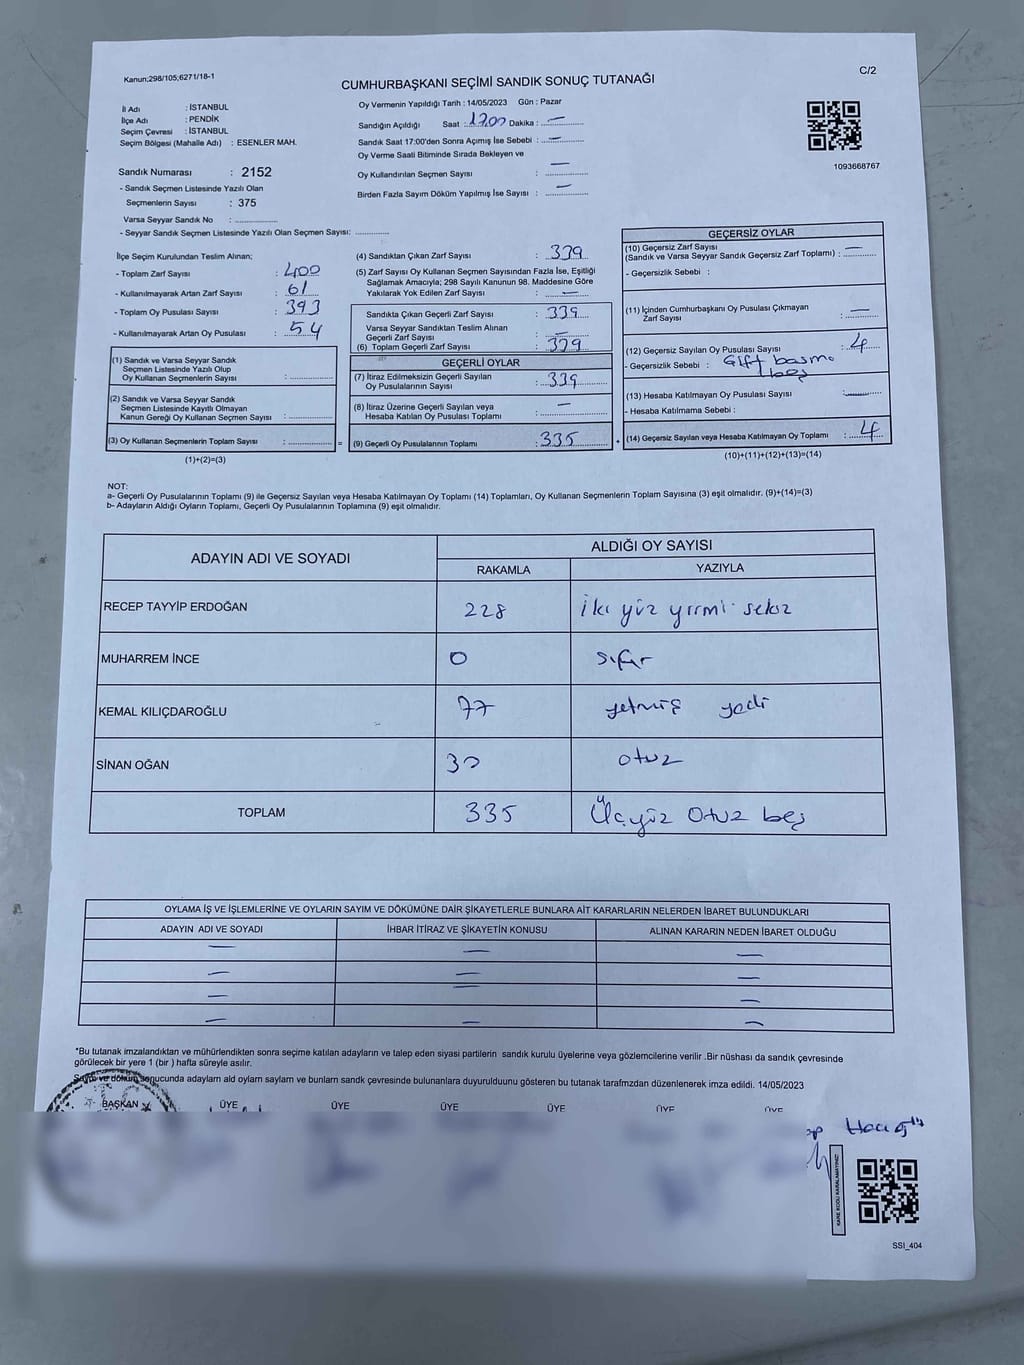 Kanun:298/105;6271/18-1
C/2
CUMHURBAŞKANI SEÇİMİ SANDIK SONUÇ TUTANAĞI
İl Adı : İSTANBUL
İlçe Adı : PENDİK
Seçim Çevresi : İSTANBUL
Seçim Bölgesi (Mahalle Adı) : ESENLER MAH.
Sandık Numarası : 2152
- Sandık Seçmen Listesinde Yazılı Olan
Seçmenlerin Sayısı : 375
Varsa Seyyar Sandık No :
- Seyyar Sandık Seçmen Listesinde Yazılı Olan Seçmen Sayısı:
Oy Vermenin Yapıldığı Tarih : 14/05/2023 Gün : Pazar
Sandığın Açıldığı Saat : 17.00 Dakika : —
Sandık Saat 17:00'den Sonra Açımış İse Sebebi : —
Oy Verme Saati Bitiminde Sırada Bekleyen ve
Oy Kullandırılan Seçmen Sayısı : —
Birden Fazla Sayım Döküm Yapılmış İse Sayısı : —
1093668767
İlçe Seçim Kurulundan Teslim Alınan;
- Toplam Zarf Sayısı : 400
- Kullanılmayarak Artan Zarf Sayısı : 61
- Toplam Oy Pusulası Sayısı : 393
- Kullanılmayarak Artan Oy Pusulası : 54
(1) Sandık ve Varsa Seyyar Sandık
Seçmen Listesinde Yazılı Olup
Oy Kullanan Seçmenlerin Sayısı :
(2) Sandık ve Varsa Seyyar Sandık
Seçmen Listesinde Kayıtlı Olmayan
Kanun Gereği Oy Kullanan Seçmen Sayısı :
(3) Oy Kullanan Seçmenlerin Toplam Sayısı : =
(1)+(2)=(3)
(4) Sandıktan Çıkan Zarf Sayısı : 339
(5) Zarf Sayısı Oy Kullanan Seçmen Sayısından Fazla İse, Eşitliği
Sağlamak Amacıyla; 298 Sayılı Kanunun 98. Maddesine Göre
Yakılarak Yok Edilen Zarf Sayısı : —
Sandıkta Çıkan Geçerli Zarf Sayısı : 339
Varsa Seyyar Sandıktan Teslim Alınan
Geçerli Zarf Sayısı : —
(6) Toplam Geçerli Zarf Sayısı : 339
GEÇERLİ OYLAR
(7) İtiraz Edilmeksizin Geçerli Sayılan
Oy Pusulalarının Sayısı : 339
(8) İtiraz Üzerine Geçerli Sayılan veya
Hesaba Katılan Oy Pusulası Toplamı : —
(9) Geçerli Oy Pusulalarının Toplamı : 335 +
GEÇERSİZ OYLAR
(10) Geçersiz Zarf Sayısı
(Sandık ve Varsa Seyyar Sandık Geçersiz Zarf Toplamı) : —
- Geçersizlik Sebebi :
(11) İçinden Cumhurbaşkanı Oy Pusulası Çıkmayan
Zarf Sayısı : —
(12) Geçersiz Sayılan Oy Pusulası Sayısı : 4
- Geçersizlik Sebebi : Çift basma
boş
(13) Hesaba Katılmayan Oy Pusulası Sayısı :
- Hesaba Katılmama Sebebi :
(14) Geçersiz Sayılan veya Hesaba Katılmayan Oy Toplamı : 4
(10)+(11)+(12)+(13)=(14)
NOT:
a- Geçerli Oy Pusulalarının Toplamı (9) ile Geçersiz Sayılan veya Hesaba Katılmayan Oy Toplamı (14) Toplamları, Oy Kullanan Seçmenlerin Toplam Sayısına (3) eşit olmalıdır. (9)+(14)=(3)
b- Adayların Aldığı Oyların Toplamı, Geçerli Oy Pusulalarının Toplamına (9) eşit olmalıdır.
ADAYIN ADI VE SOYADI
ALDIĞI OY SAYISI
RAKAMLA YAZIYLA
RECEP TAYYİP ERDOĞAN 228 iki yüz yirmi sekiz
MUHARREM İNCE 0 sıfır
KEMAL KILIÇDAROĞLU 77 yetmiş yedi
SİNAN OĞAN 30 otuz
TOPLAM 335 Üçyüz Otuz beş
OYLAMA İŞ VE İŞLEMLERİNE VE OYLARIN SAYIM VE DÖKÜMÜNE DAİR ŞİKAYETLERLE BUNLARA AİT KARARLARIN NELERDEN İBARET BULUNDUKLARI
ADAYIN ADI VE SOYADI İHBAR İTİRAZ VE ŞİKAYETİN KONUSU ALINAN KARARIN NEDEN İBARET OLDUĞU
*Bu tutanak imzalandıktan ve mühürlendikten sonra seçime katılan adayların ve talep eden siyasi partilerin sandık kurulu üyelerine veya gözlemcilerine verilir .Bir nüshası da sandık çevresinde
görülecek bir yere 1 (bir ) hafta süreyle asılır.
Sayım ve döküm sonucunda adayların ald oyların sayların ve bunların sandk çevresinde bulunanlara duyurulduunu gösteren bu tutanak tarafmzdan düzenlenerek imza edildi. 14/05/2023
BAŞKAN ÜYE ÜYE ÜYE ÜYE ÜYE ÜYE
KARE KODU KARALAMAYINIZ!
SSİ_404